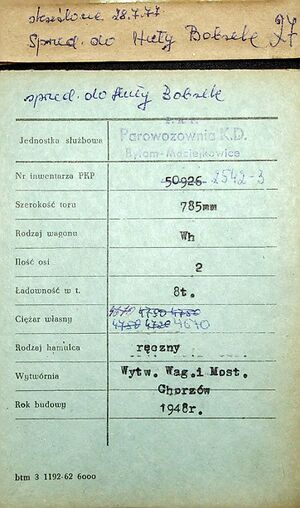 skreślono 28.7.77
Sprzed. do Huty Bobrek
sprzed. do Huty Bobrek
P.K.P.
Jednostka służbowa Parowozownia K.D.
Bytom-Maciejkowice
Nr inwentarza PKP 50926 2542-3
Szerokość toru 785mm
Rodzaj wagonu Wh
Ilość osi 2
Ładowność w t. 8t.
4670 4790 4780
Ciężar własny 4750 4720 4640
Rodzaj hamulca ręczny
Wytwórnia Wytw. Wag.i Most.
Chorzów
Rok budowy 1948r.
btm 3 1192-62 6000